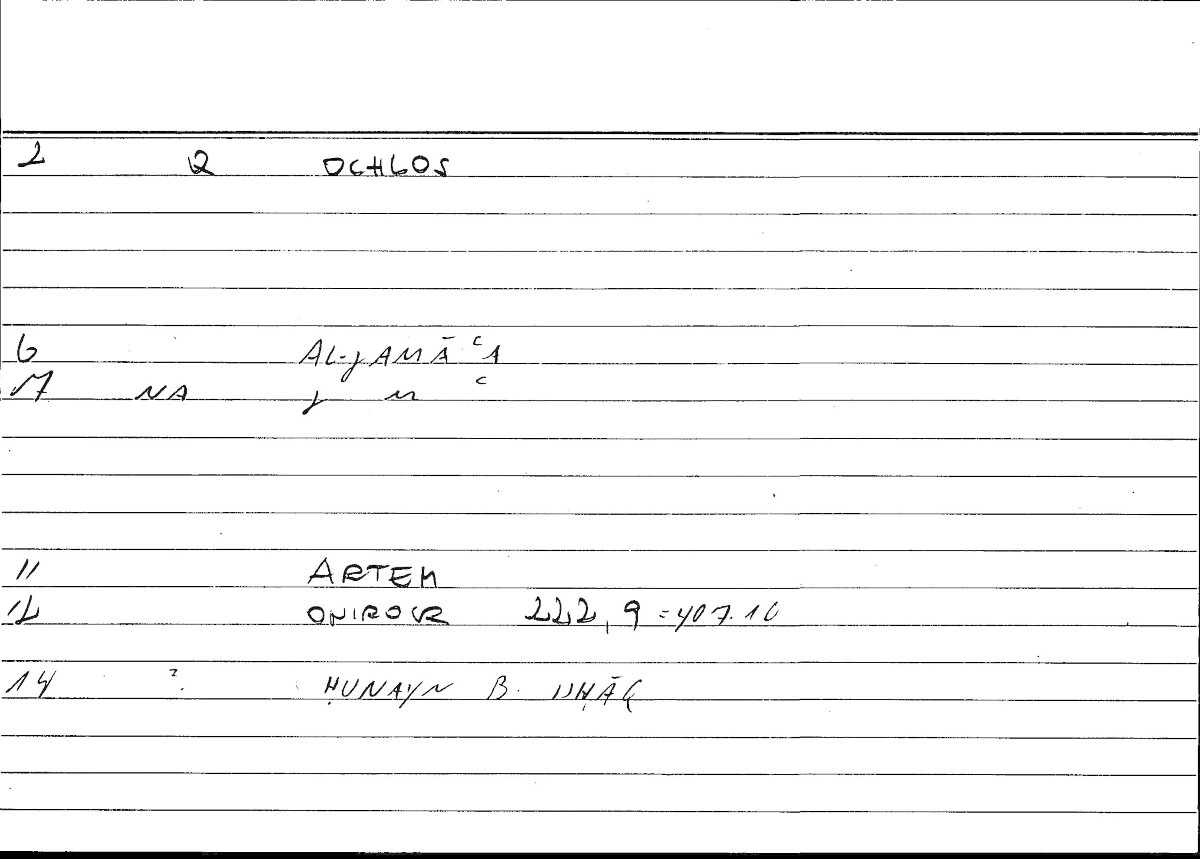 2 Q OCHLOS
6 AL-JAMĀʿA
7 NA J M ʿ
11 ARTEM
12 ONIROCR 222,9 = 407.10
14 ? ḤUNAYN B. ISḤĀQ